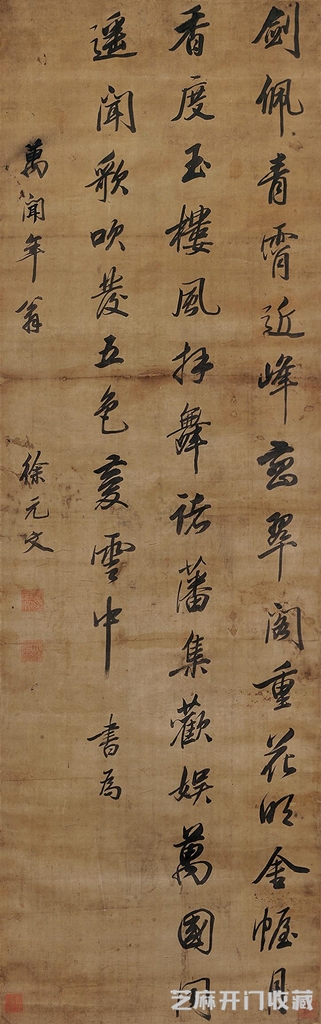 劍佩青霄近峰翠閣重花明金幄月
香度玉樓風拜舞諸藩集歡娛萬國同
遙聞歌吹發五色慶雲中 書為
萬聞年翁 徐元文
芝麻开门收藏